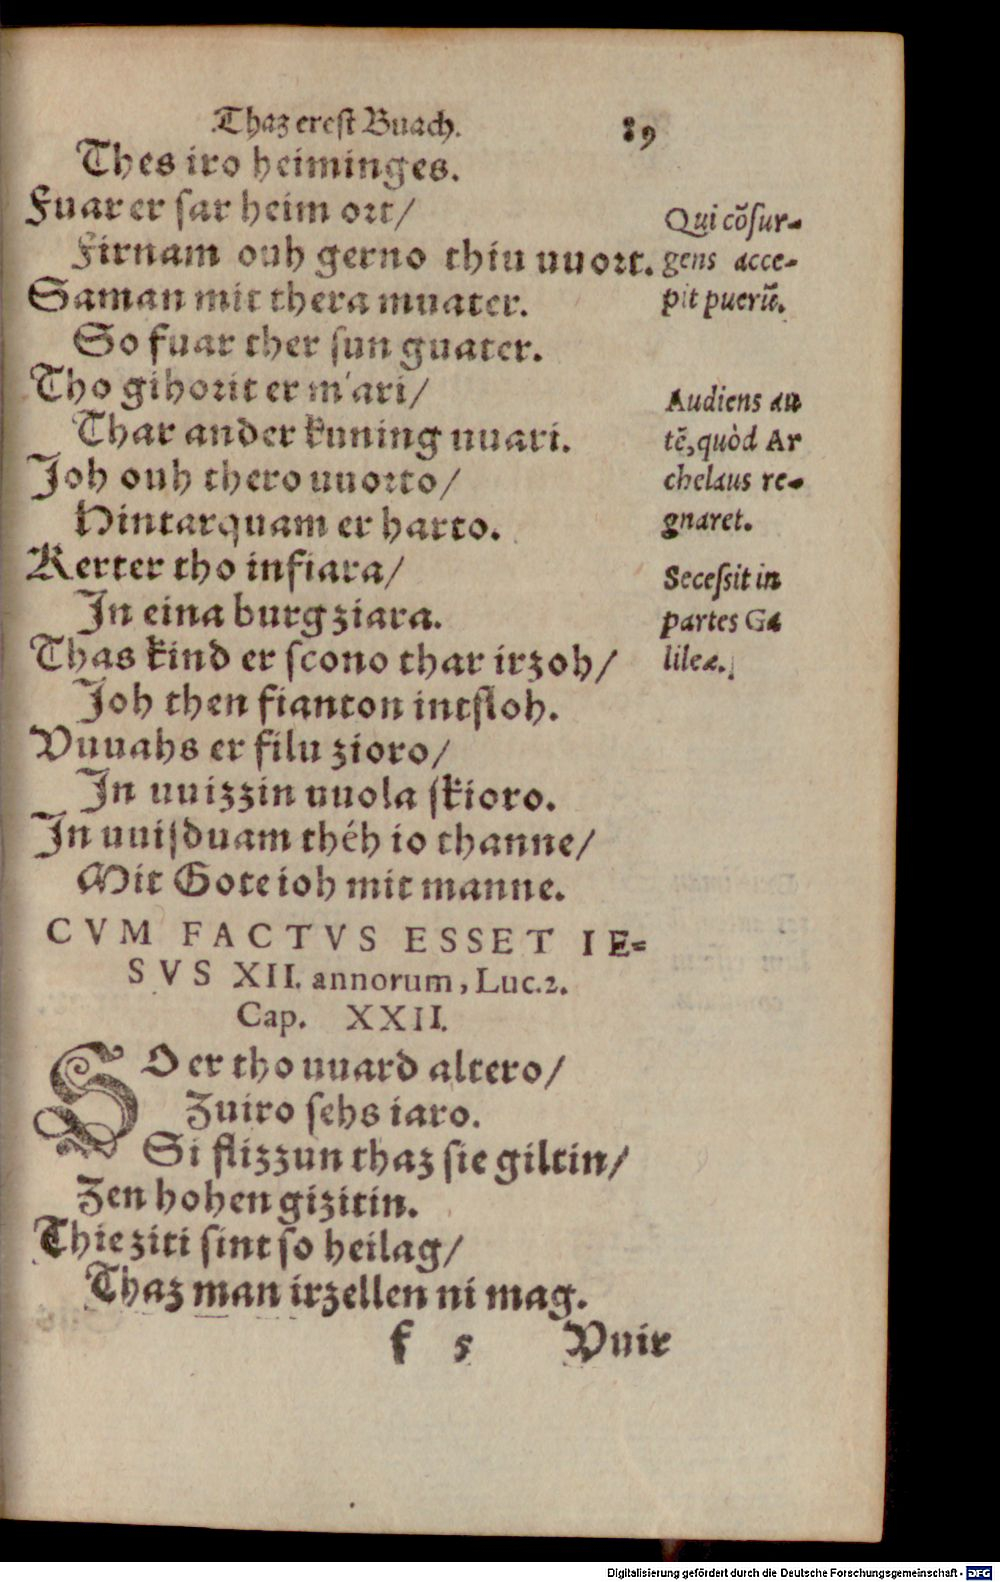 Thaz erest Buach. 89
Thes iro heiminges.
Fuar er ſar heim ort/
Firnam ouh gerno thiu uuort.
Saman mit thera muater.
So fuar ther ſun guater.
Tho gihorit er m'ari/
Thar ander kuning uuari.
Joh ouh thero uuorto/
Hintarquam er harto.
Kerter tho infiara/
In eina burg ziara.
Thas kind er ſcono thar irzoh/
Joh then fianton intfloh.
Vuuahs er filu zioro/
In uuizzin uuola ſkioro.
In uuiſduam théh io thanne/
Mit Gote ioh mit manne.
Qui cõſur-
gens acce-
pit puerũ.
Audiens au
tẽ, quòd Ar
chelaus re-
gnaret.
Seceſsit in
partes Ga
lileæ.
CVM FACTVS ESSET IE=
SVS XII. annorum, Luc.2.
Cap. XXII.
SO er tho uuard altero/
Zuiro ſehs iaro.
Si flizzun thaz ſie giltin/
Zen hohen gizitin.
Thie ziti ſint ſo heilag/
Thaz man irzellen ni mag.
f 5 Vuir
Digitalisierung gefördert durch die Deutsche Forschungsgemeinschaft - DFG